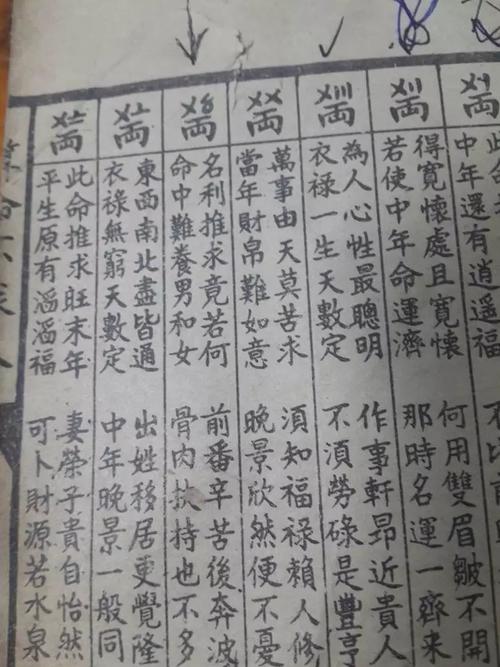 〤〡両
中年還有逍遙福
〤〢両
得寬懷處且寬懷
何用雙眉皺不開
若使中年命運濟
那時名運一齊來
〤〣両
為人心性最聰明
作事軒昂近貴人
衣祿一生天數定
不湏勞碌是豐亨
〤〤両
萬事由天莫苦求
須知福祿賴人修
當年財帛難如意
晚景欣然便不憂
〤〥両
名利推求竟若何
前番辛苦後奔波
命中難養男和女
骨肉扶持也不多
〤〦両
東西南北盡皆通
出姓移居更覺隆
衣祿無窮天數定
中年晚景一般同
〤〧両
此命推求旺末年
妻榮子貴自怡然
平生原有滔滔福
可卜財源若水泉